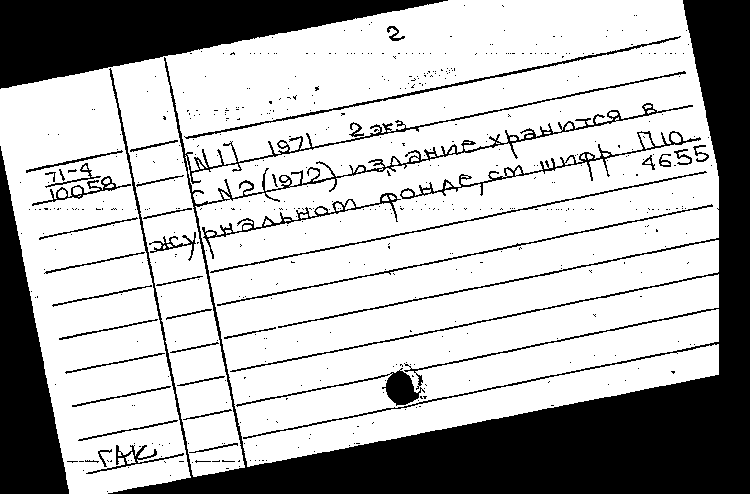 2
71-4
10058
[N1] 1971 2 экз.
С N2 (1972) издание хранится в
журнальном фонде, см шифр. П10
4655
ГАК